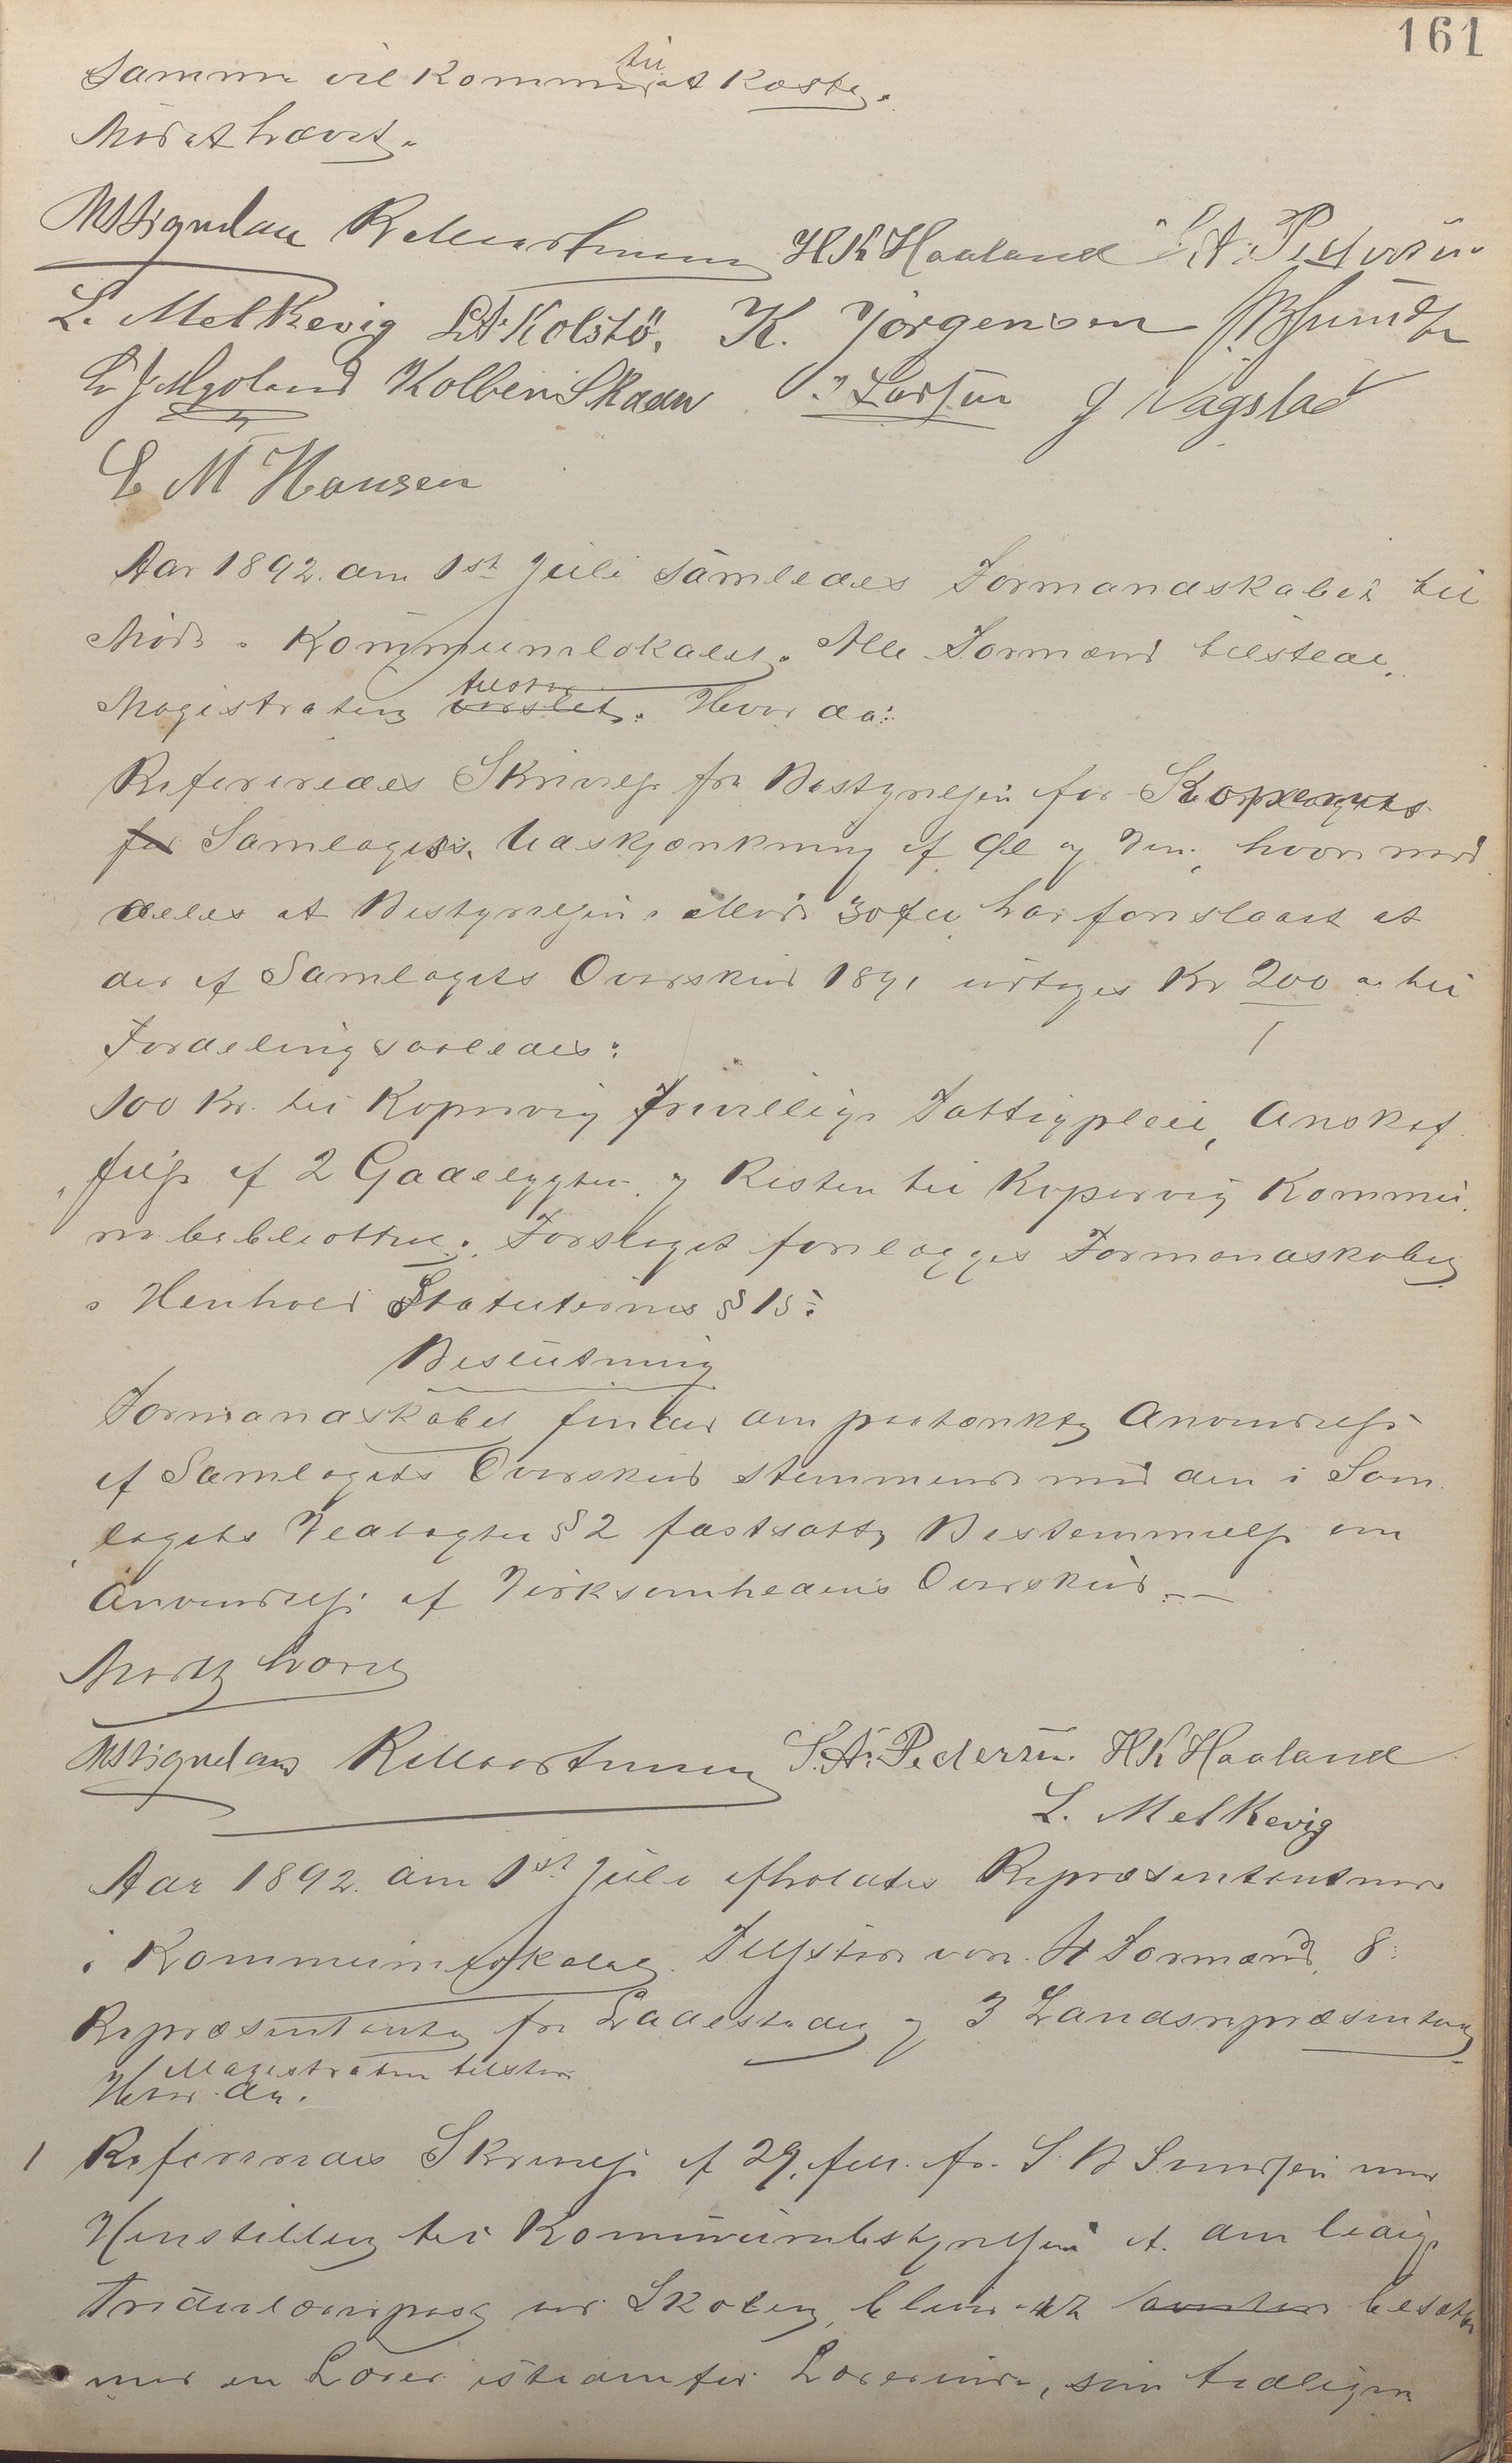 161
samme vil komme til at koste.
Mødet hævet.
H K Haaland S. A. Pedersen
L. Melkevig L A Kolstø. K. Jörgensen
Kolben Skaar Larsen J Vagstad
E M Hansen
Aar 1892 den 1st Juli samledes Formandskabet til
Møde i Kommunelokalet. Alle Formænd tilstede.
Magistraten tilstede varslet. Hvor da:
Refereredes Skrivelse fra Bestyrelsen for Kopervigs
for Samlagets Udskjænkning af Øl og Vin, hvori med
deles at Bestyrelsen i Møde 30te har foreslaaet at
der af Samlagets Overskud 1891 udtages Kr 200 til
Fordeling saaledes:
100 Kr. til Kopervig frivillige Fattigpleie, Anskaf
felse af 2 Gadelygter og Resten til Kopervig Kommu
nebibliothek. Forslaget forelægges Formandskabet
i Henhold Statuternes § 15:
Beslutning
Formandskabet finder den paatænkte Anvendelse
af Samlagets Overskud stemmende med den i Sam
lagets Vedtægter § 2 fastsatte Bestemmelse om
Anvendelse af Virksomhedens Overskud.—
Mødet hævet
S. A. Pedersen. H K Haaland
L. Melkevig
Aar 1892 den 1st Juli afholdtes Repræsentantmøde
i Kommunelokalet. Tilstede var 4 Formænd, 8
Repræsentanter fra Ladestedet og 3 Landsrepræsentanter
Magistraten tilstede
Hvor da.
1 Refereredes Skrivelse af 29. fra S. B. med
Henstilling til Kommunebestyrelsen at den ledige
post ved Skolen, bliver at besætte
med en Lærer istedenfor Lærerinde, som tidligere